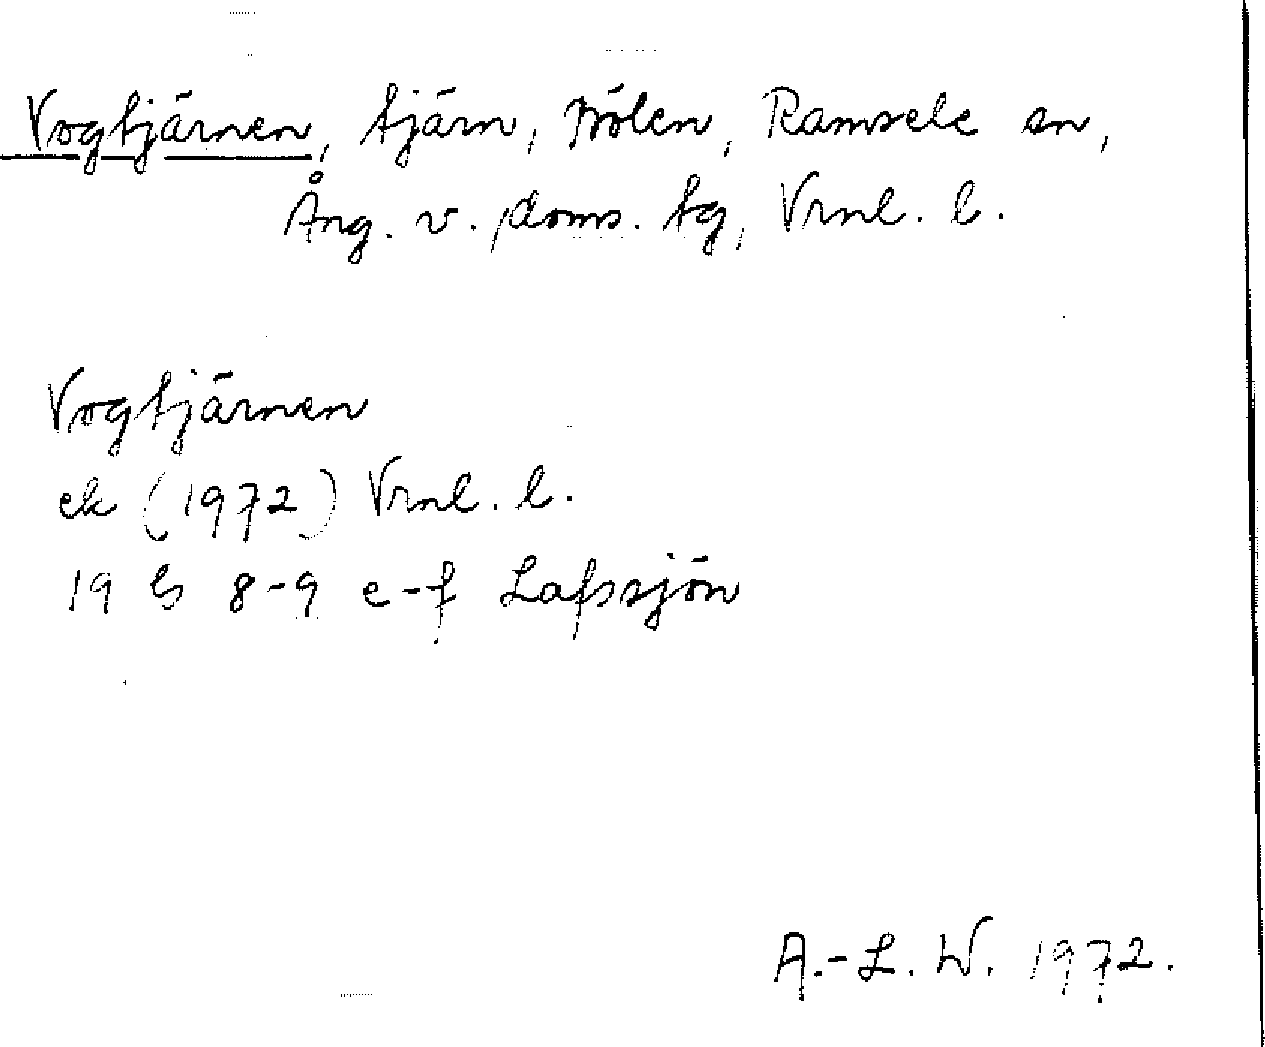 Vogtjärnen, tjärn, Bölen, Ramsele sn,
Ång. v. doms. tg, Vrnl. l.
Vogtjärnen
ek (1972) Vrnl. l.
19 G 8-9 e-f Lafssjön
A.-L. W. 1972.